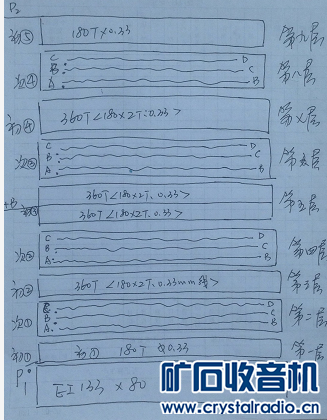 P₂
初⑤ 180T×0.33 第九层
C D
次④ B C 第八层
A B
初④ 360T<180×2T.0.33> 第七层
C D
次③ B C 第六层
A B
+B 初③ 360T<180×2T.0.33> 第五层
360T<180×2T.0.33>
C D
次② B C 第四层
A B
初② 360T<180×2T.0.33mm线> 第三层
D
次① B C 第二层
A B
初① 初① 180T 0.33 第一层
P₁ EI 133×80
矿石收音机
www.crystalradio.cn